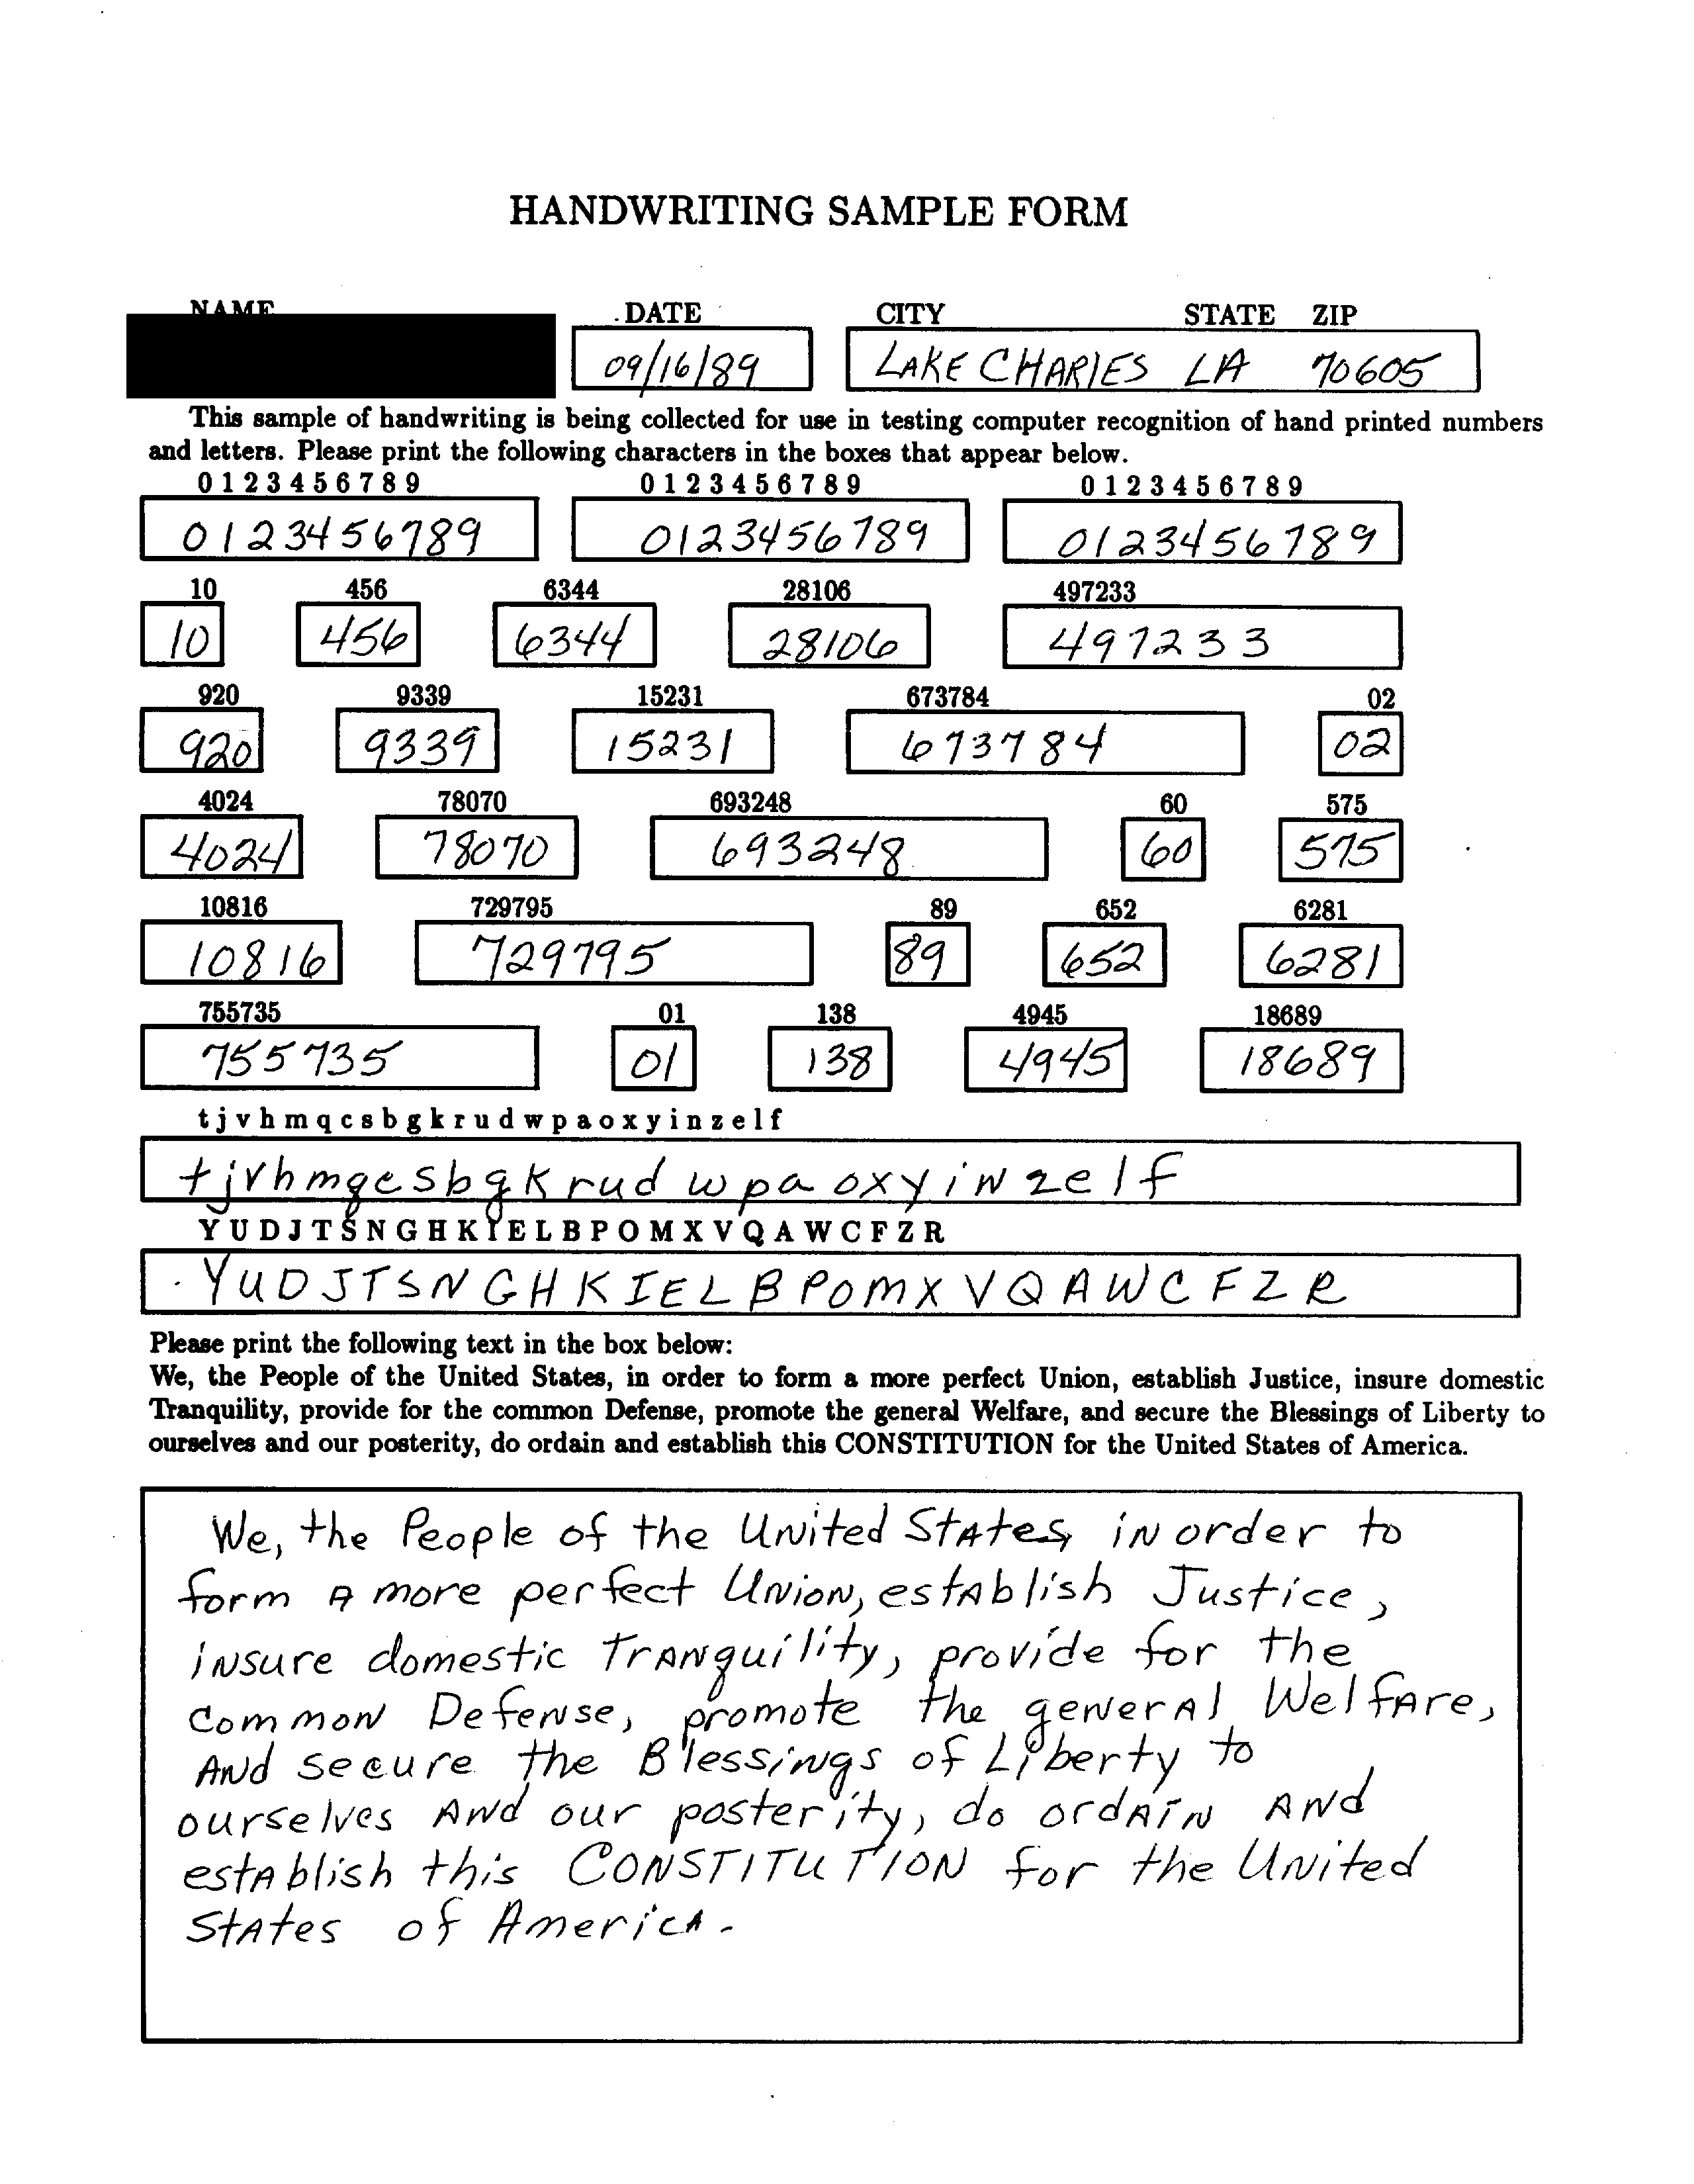 HANDWRITING SAMPLE FORM
NAME DATE CITY STATE ZIP
09/16/89 LAKE CHARLES LA 70605
This sample of handwriting is being collected for use in testing computer recognition of hand printed numbers
and letters. Please print the following characters in the boxes that appear below.
0 1 2 3 4 5 6 7 8 9 0 1 2 3 4 5 6 7 8 9 0 1 2 3 4 5 6 7 8 9
0123456789 0123456789 0123456789
10 456 6344 28106 497233
10 456 6344 28106 497233
920 9339 15231 673784 02
920 9339 15231 673784 02
4024 78070 693248 60 575
4024 78070 693248 60 575
10816 729795 89 652 6281
10816 729795 89 652 6281
755735 01 138 4945 18689
755735 01 138 4945 18689
t j v h m q c s b g k r u d w p a o x y i n z e l f
tjvhmqcsbgkrudwpaoxyinzelf
Y U D J T S N G H K I E L B P O M X V Q A W C F Z R
YUDJTSNGHKIELBPOMXVQAWCFZR
Please print the following text in the box below:
We, the People of the United States, in order to form a more perfect Union, establish Justice, insure domestic
Tranquility, provide for the common Defense, promote the general Welfare, and secure the Blessings of Liberty to
ourselves and our posterity, do ordain and establish this CONSTITUTION for the United States of America.
We, the People of the United States, in order to
form a more perfect Union, establish Justice,
insure domestic Tranquility, provide for the
common Defense, promote the general Welfare,
and secure the Blessings of Liberty to
ourselves and our posterity, do ordain and
establish this CONSTITUTION for the United
States of America.